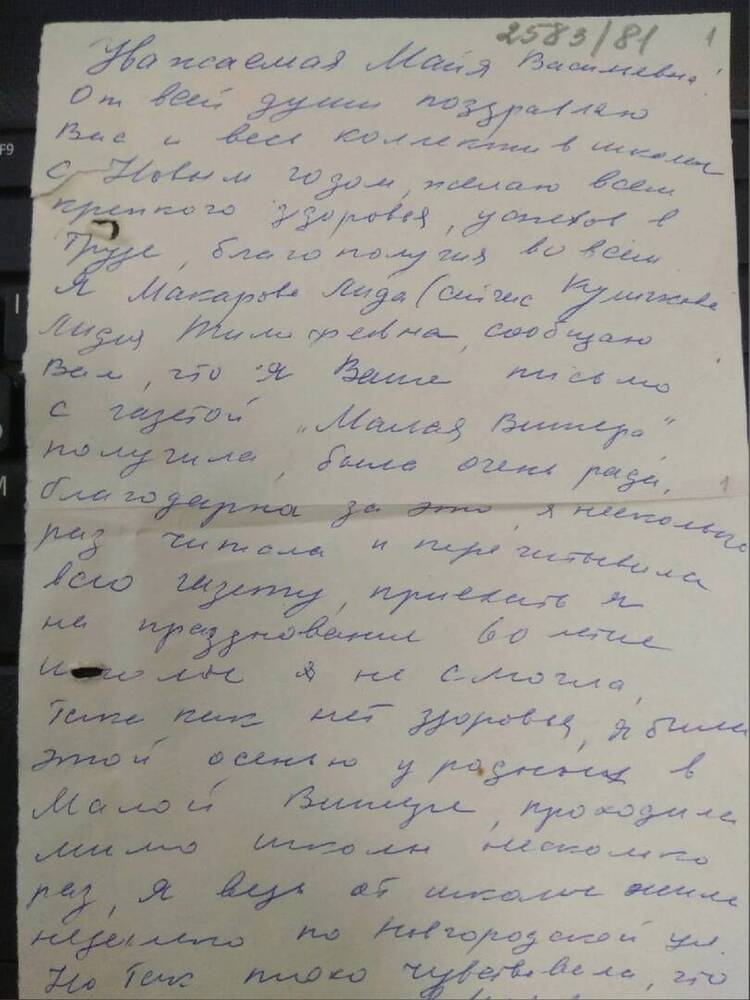 2583/81 1
Уважаемая Майя Васильевна!
От всей души поздравляю
Вас и весь коллектив школы
с Новым годом, желаю всем
крепкого здоровья, успехов в
труде, благополучия во всем
Я Макарова Лида (сейчас Куличкова
Лидия Тимофевна, сообщаю
Вам, что я Ваше письмо
с газетой „Малая Вишера"
получила, была очень рада,
1
благодарна за это, я несколько
раз читала и перечитывала
всю газету, приехать я
на празднование 60 летие
школы я не смогла,
так как нет здоровья, я была
этой осенью у родных в
Малой Вишере, проходила
мимо школы несколко
раз, я ведь от школы жила
недалеко по Новгородской ул.
Но так плохо чувствовала, что